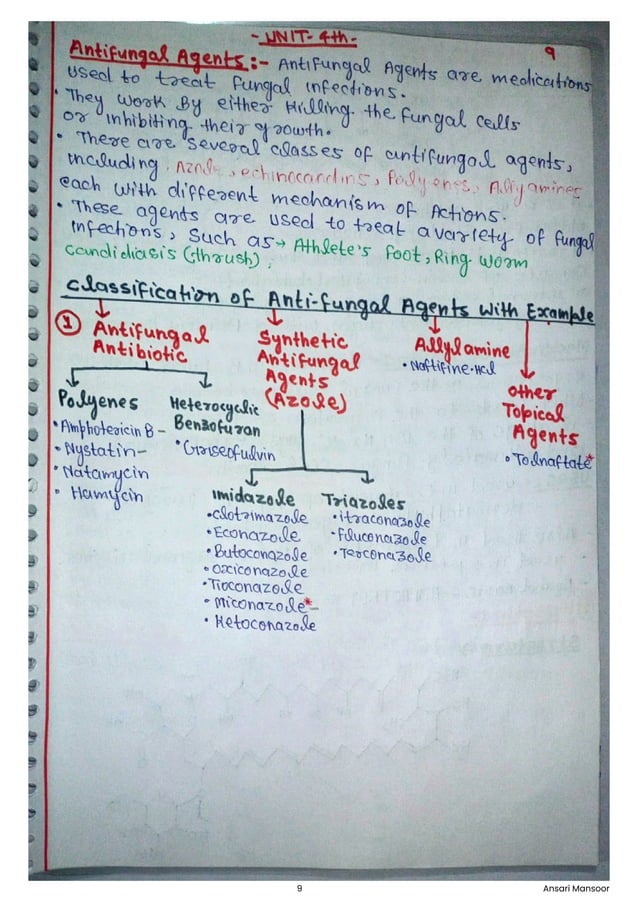 - UNIT- 4th -
9
Antifungal Agents :- Antifungal Agents are medications
used to treat fungal infections.
• They work By either Killing the fungal cells
or inhibiting their growth.
• There are several classes of antifungal agents,
including Azole, echinocandins, Polyenes, Allyamines
each with different mechanism of Actions.
• These agents are used to treat a variety of fungal
infections, such as → Athlete's foot, Ring worm
candidiasis (thrush).
Classification of Anti-fungal Agents with Example
① Antifungal Antibiotic
Polyenes
• Amphotericin B -
• Nystatin -
• Natamycin
• Hamycin
Heterocyclic
Benzofuran
• Griseofulvin
Synthetic
Antifungal
Agents
(Azole)
Imidazole
• Clotrimazole
• Econazole
• Butoconazole
• Oxiconazole
• Tioconazole
• Miconazole* -
• Ketoconazole
Triazoles
• itraconazole
• Fluconazole
• Terconazole
Allylamine
• Naftifine.Hcl
other
Topical
Agents
• Tolnaftate*
9
Ansari Mansoor